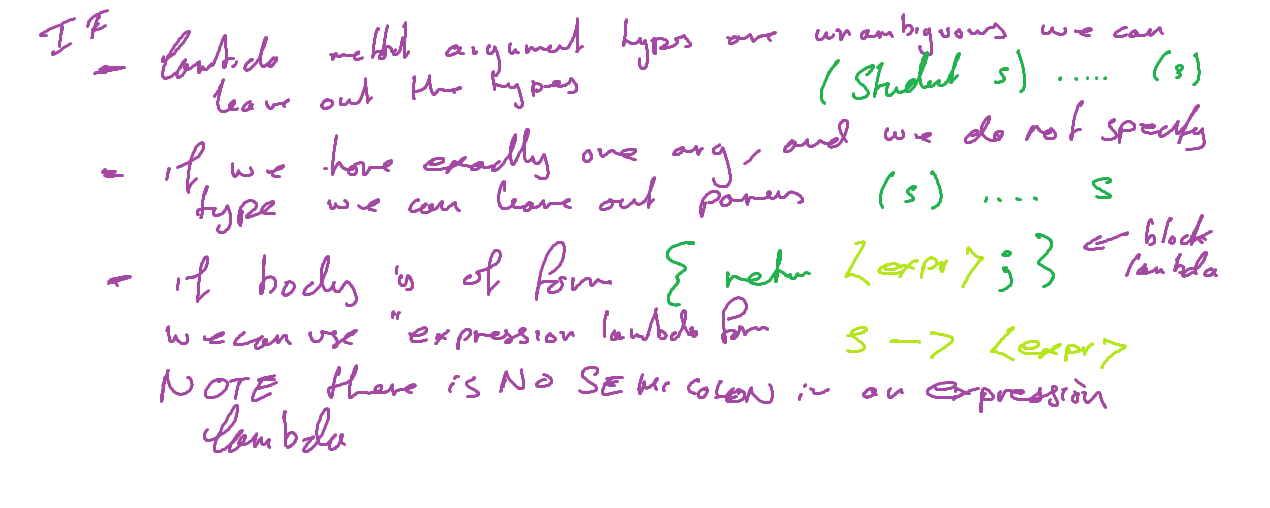 IF
- lambda method argument types are unambiguous we can
leave out the types (Student s) ..... (s)
- if we have exactly one arg, and we do not specify
type we can leave out parens (s) .... s
- if body is of form { return <expr> ; } <- block lambda
we can use "expression lambda form s -> <expr>
NOTE there is NO SEMICOLON in an expression
lambda